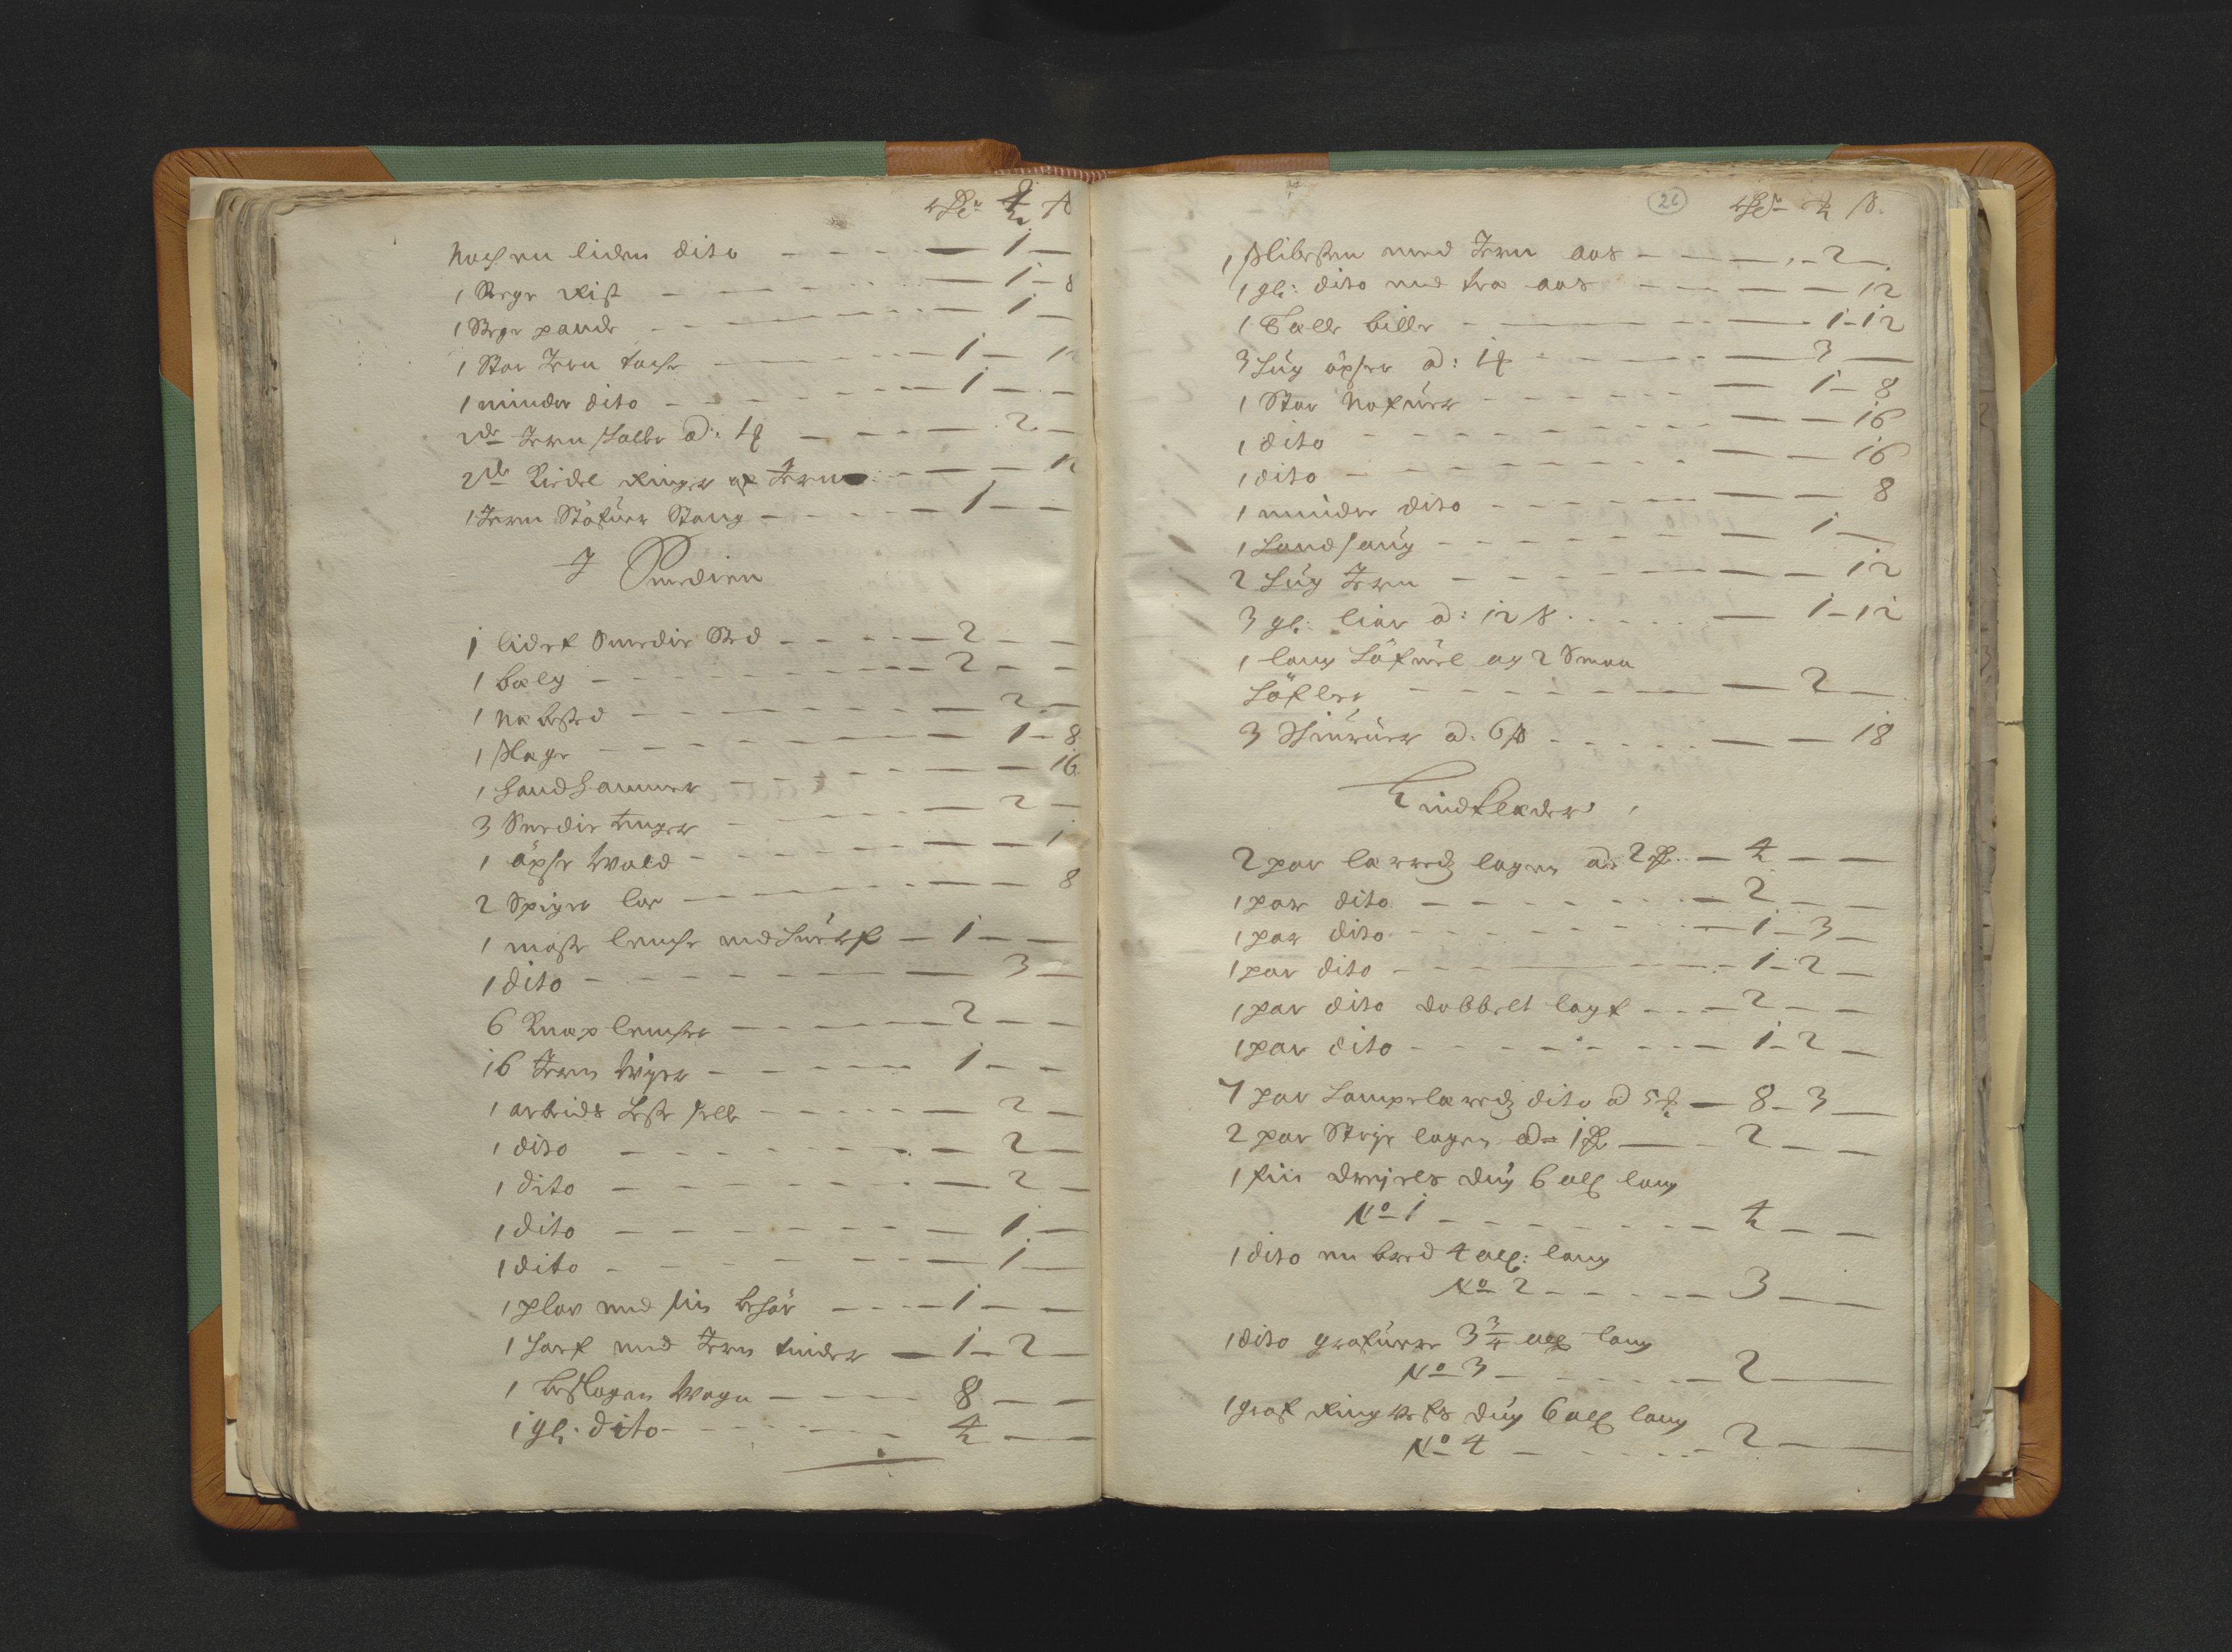 rdr ₰ ß
Noch en liden dito — 1 —
1 Stege Rist — 1 - 8
1 Stege pande — 1 —
1 Stor Jern tache — 1 — 12
1 minder dito — 1 — —
2de Jern stolbe a: 1 — 2 —
2de Kiedel Ringer af Jern — — 12
1 Jern Støfuer Stang — 1 — —
J Smedien
1 lidet Smedie Sted — 2 — —
1 bælg — 2 — —
1 Næbsted — 2 —
1 slage — 1 - 8
1 handhammer — — 16
3 Smedie tenger — 2 —
1 øxse Wold — 1
2 Spiger lor — — 8
1 mast lenche med huerf — 1 — —
1 dito — 3 —
6 Knap lencher — 2 — —
16 Jern Wyer — 1 — —
1 arbeids hæste selle — 2 —
1 dito — 2 —
1 dito — 2 —
1 dito — 1 —
1 dito — 1 —
1 plov med sin behør — 1 — —
1 harf med Jern tinder — 1 - 2 —
1 beslagen Wogn — 8 — —
1 gl: dito — 4 — —
26
rdr ₰ ß.
1 slibesten med Jern aas — 2 —
1 gl: dito med træ aas — — 12
1 Tælle bille — 1 - 12
3 hug øxser a: 1 — 3 —
1 Stor Nafuer — 1 - 8
1 dito — — 16
1 dito — — 16
1 minder dito — — 8
1 handsaug — 1 —
2 hug Jern — — 12
3 gl: liar a: 12 ß — 1 - 12
1 lang høfuel og 2 Smaa
høfler — 2 —
3 Skiærer a: 6 ß — — 18
Lindklæder
2 par lærreds lagen a: 2 — 4 — —
1 par dito — 2 — —
1 par dito — 1 - 3 —
1 par dito — 1 - 2 —
1 par dito dobbelt lagt — 2 — —
1 par dito — 1 - 2 —
7 par hampelærreds dito a 5 — 8 - 3 —
2 par Strye lagen a 1 — 2 — —
1 fiin dreyels dug 6 all lang
No 1 — 4 — —
1 dito en bred 4 all: lang
No 2 — 3 — —
1 dito grofuere 3 3/4 all lang
No 3 — 2 —
1 grof Ringkefs dug 6 all lang
No 4 — 2 —